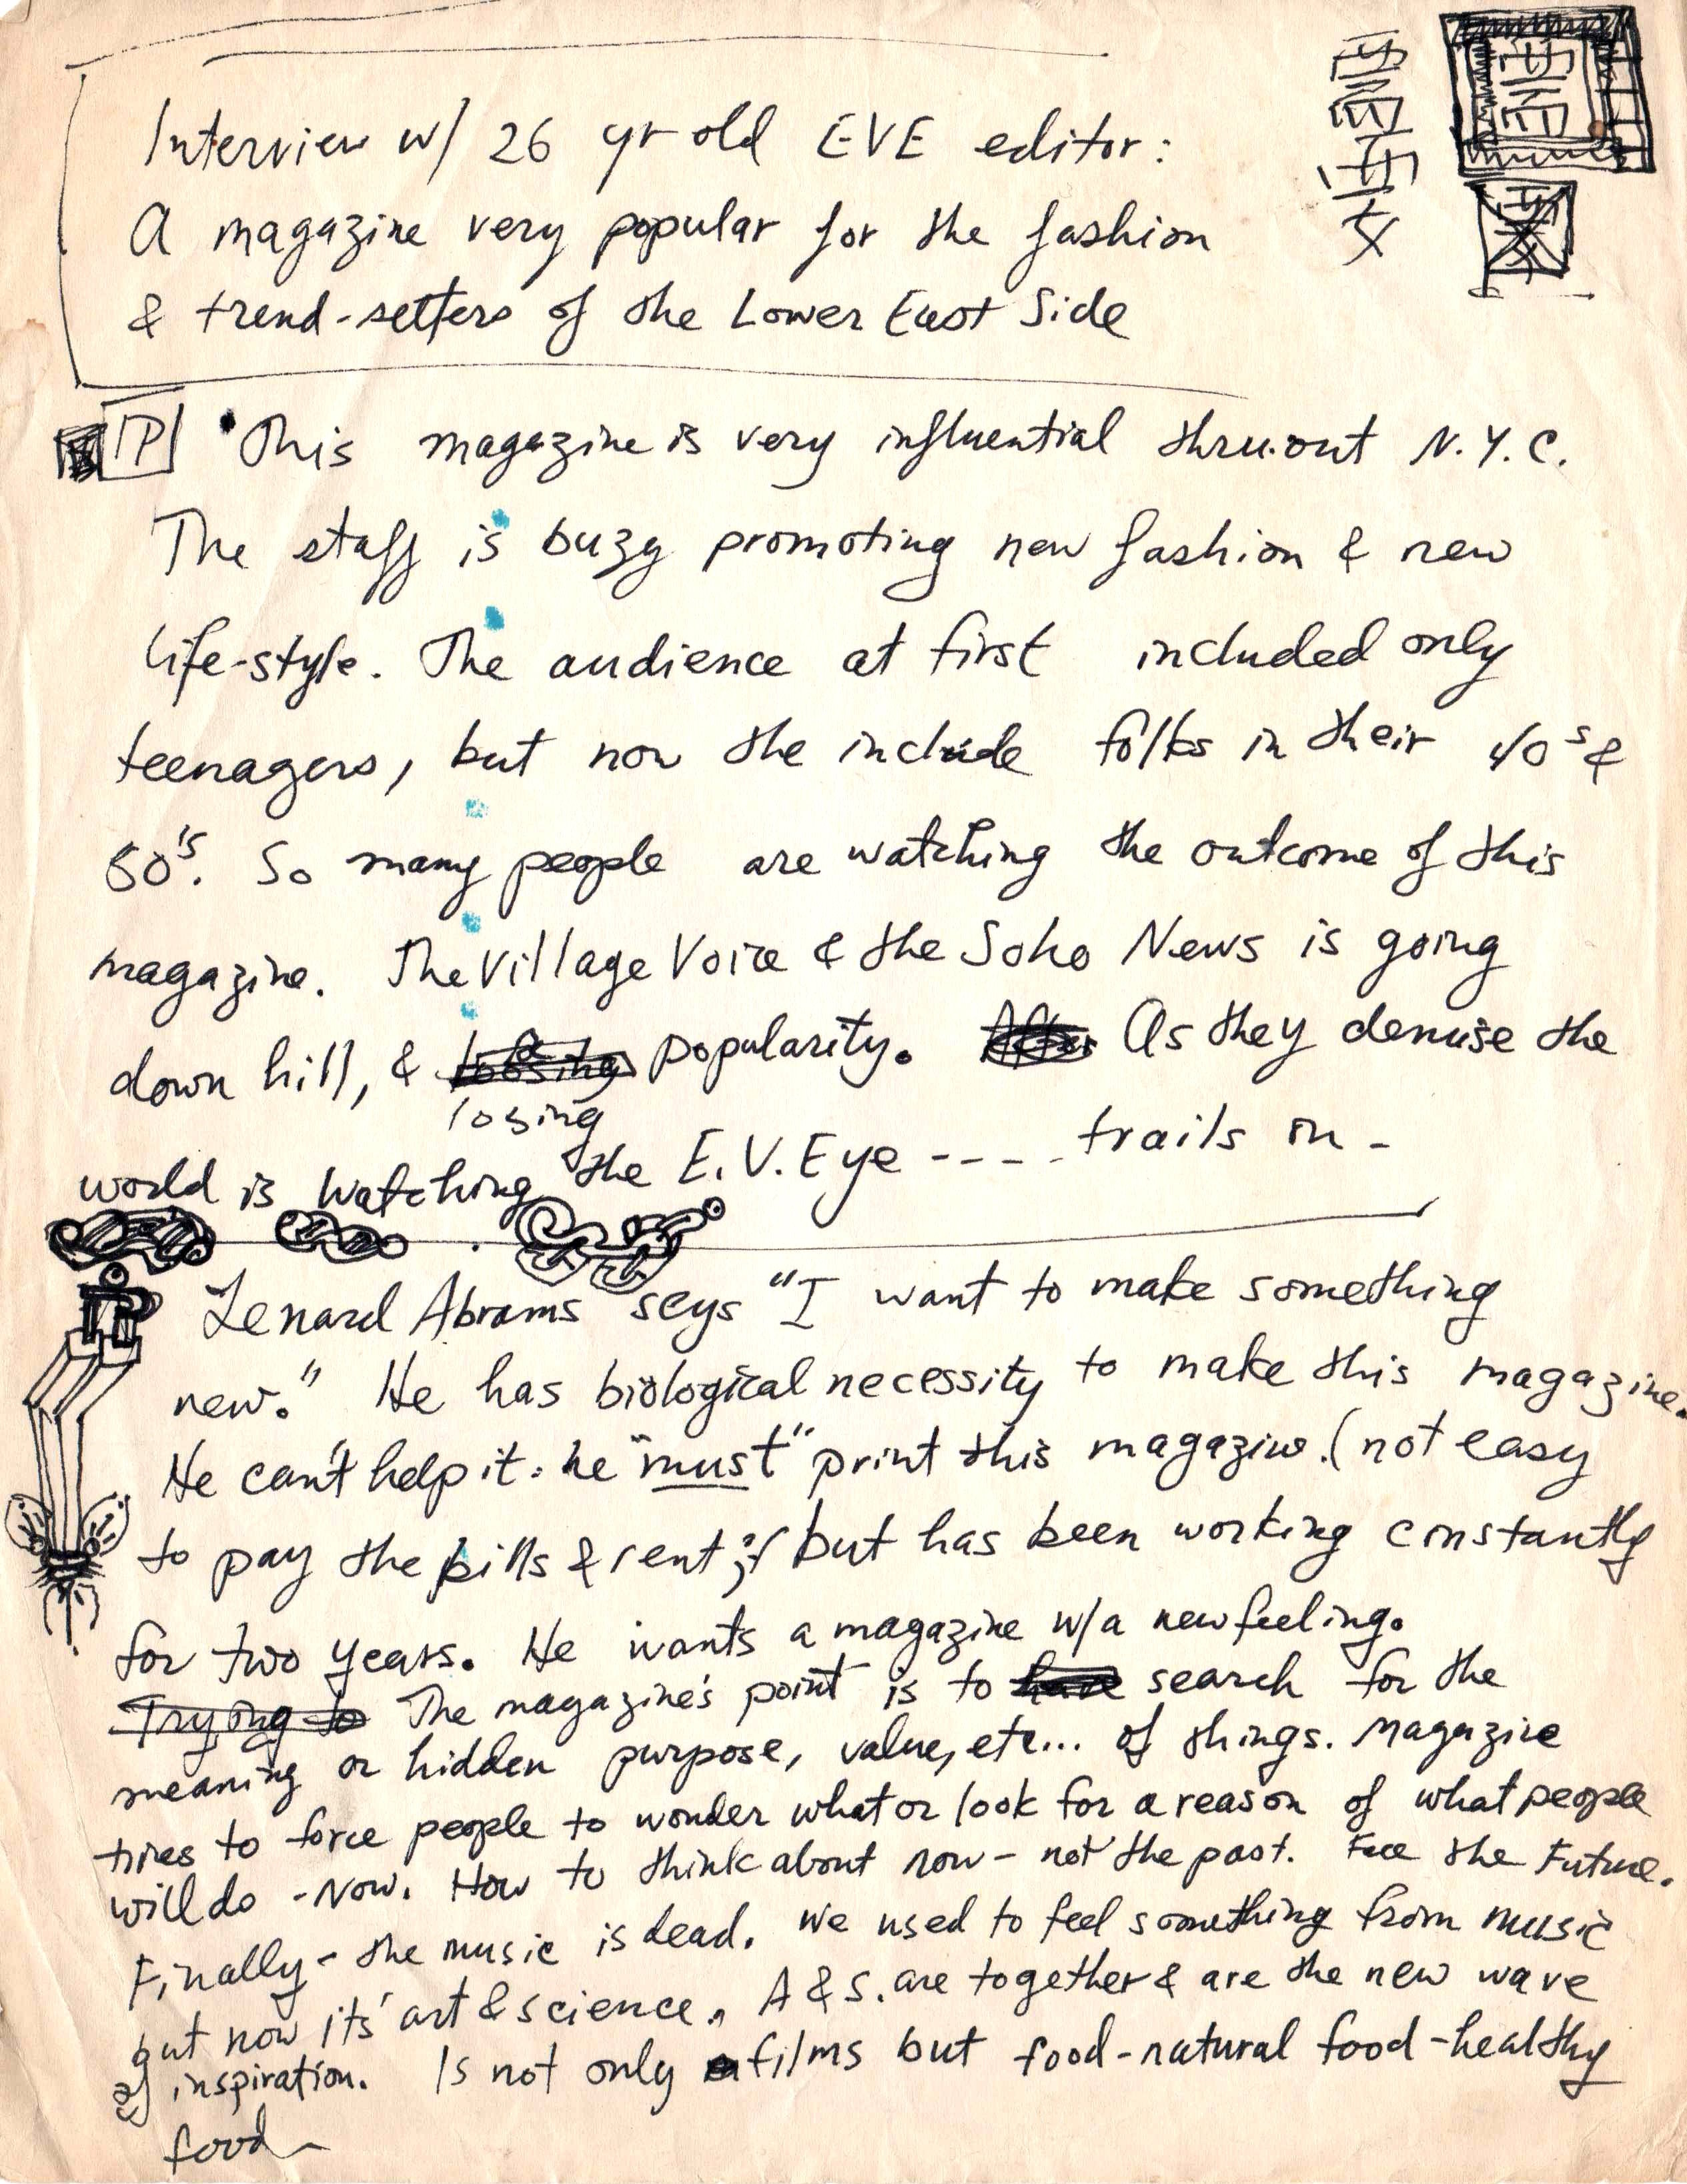 Interview w/ 26 yr old EVE editor:
A magazine very popular for the fashion
& trend-setters of the Lower East Side
P This magazine is very influential thru.out N.Y.C.
The staff is buzy promoting new fashion & new
life-style. The audience at first included only
teenagers, but now the include folks in their 40s &
50's. So many people are watching the outcome of this
magazine. The Village Voice & the Soho News is going
down hill, & losing popularity. As they demise the
world is watching the E.V. Eye ---- trails on -
Lenard Abrams says "I want to make something
new." He has biological necessity to make this magazine.
He can't help it: he "must" print this magazine. (not easy
to pay the bills & rent;) but has been working constantly
for two years. He wants a magazine w/a new feeling.
Trying to The magazine's point is to have search for the
meaning or hidden purpose, value, etc... of things. Magazine
tries to force people to wonder what or look for a reason of what people
will do - Now. How to think about now - not the past. Face the Future.
Finally - the music is dead. We used to feel something from music
but now its' art & science. A & S. are together & are the new wave
of inspiration. Is not only films but food-natural food-healthy
food